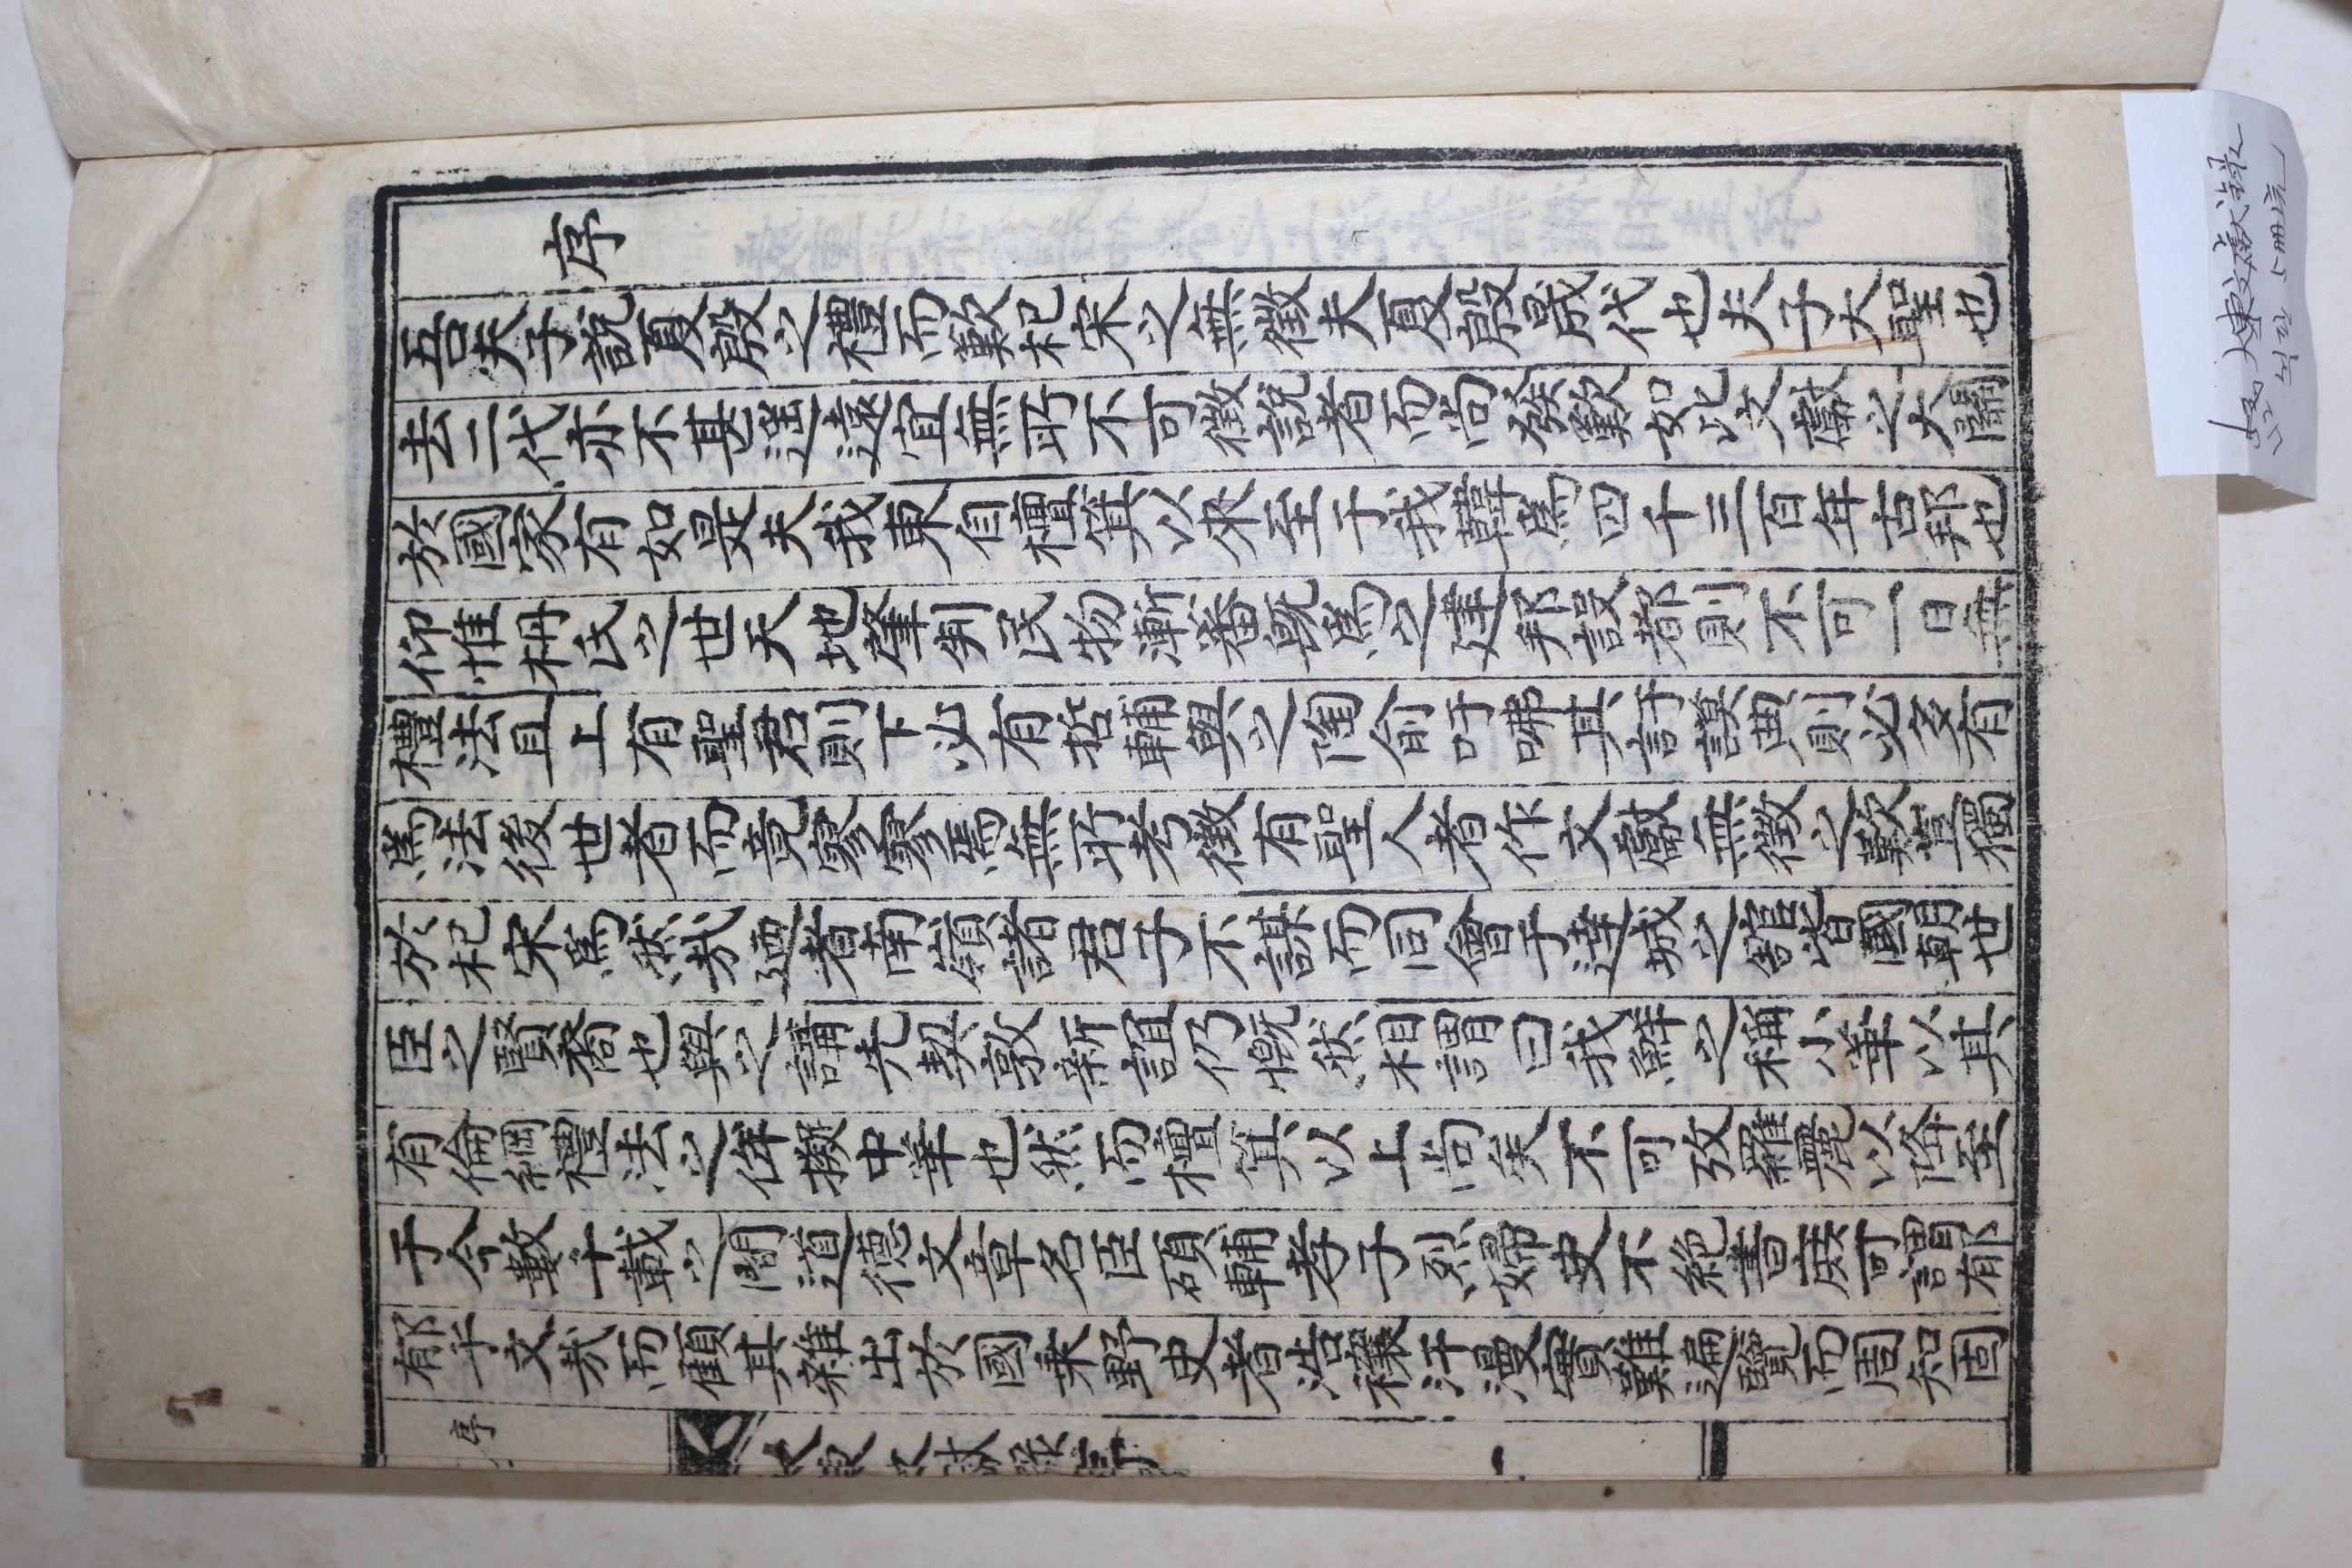 序
吾夫子說夏殷之禮而歎杞宋之無徵夫夏殷晟代也夫子大聖也
去二代亦不甚遥遠宜無所不可徵說者而尚發歎如此文獻之大關
於國家有如是夫我東自檀箕以來至于我韓爲四千三百年古邦也
仰惟枏氏之世天地肇判民物漸蕃旣爲之建邦設都則不可一日無
禮法且上有聖君則下必有哲輔與之陶俞吁咈其訏謨典則必多有
爲法後世者而竟寥寥焉無所考徵有聖人者作文獻無徵之歎豈獨
於杞宋爲然哉廼者南嶺諸君子不謀而同會于達城之舘皆國朝世
臣之賢裔也與之講先契敦新誼仍慨然相謂曰我鮮之稱小華以其
有倫綱禮法之侔擬中華也然而檀箕以上尚矣不可攷羅麗以降至
于今數千載之間道德文章名臣碩輔孝子烈婦史不絶書庶可謂郁
郁乎文哉而顧其雜出於國乘野史者浩穰汗漫實難遍覽而周知固
序
大東文獻錄序
一
大東文獻錄
5冊